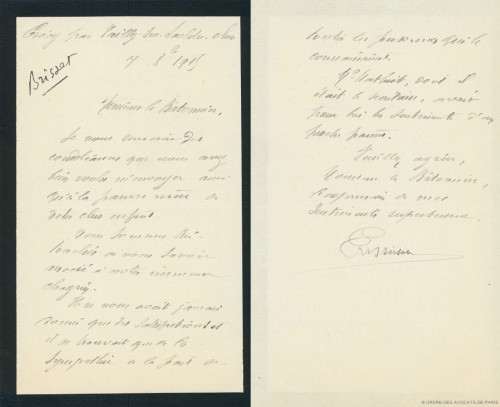 7 8bre 1915
Brisset
Monsieur le Bâtonnier,
Je vous remercie des
condoléances que vous avez
bien voulu m'envoyer ainsi
qu'à la pauvre mère de
notre cher enfant.
Nous sommes très
touchés de vous savoir
associé à notre immense
chagrin.
Il ne nous avait jamais
donné que des satisfactions et
il ne trouvait que de la
sympathie de la part de
tous les personnes qui le
connaissaient.
Me dont il
était le secrétaire, avait
pour lui les sentiments d'un
proche parent.
Veuillez agréer,
Monsieur le Bâtonnier,
l'expression de mes
sentiments respectueux.
© ORDRE DES AVOCATS DE PARIS